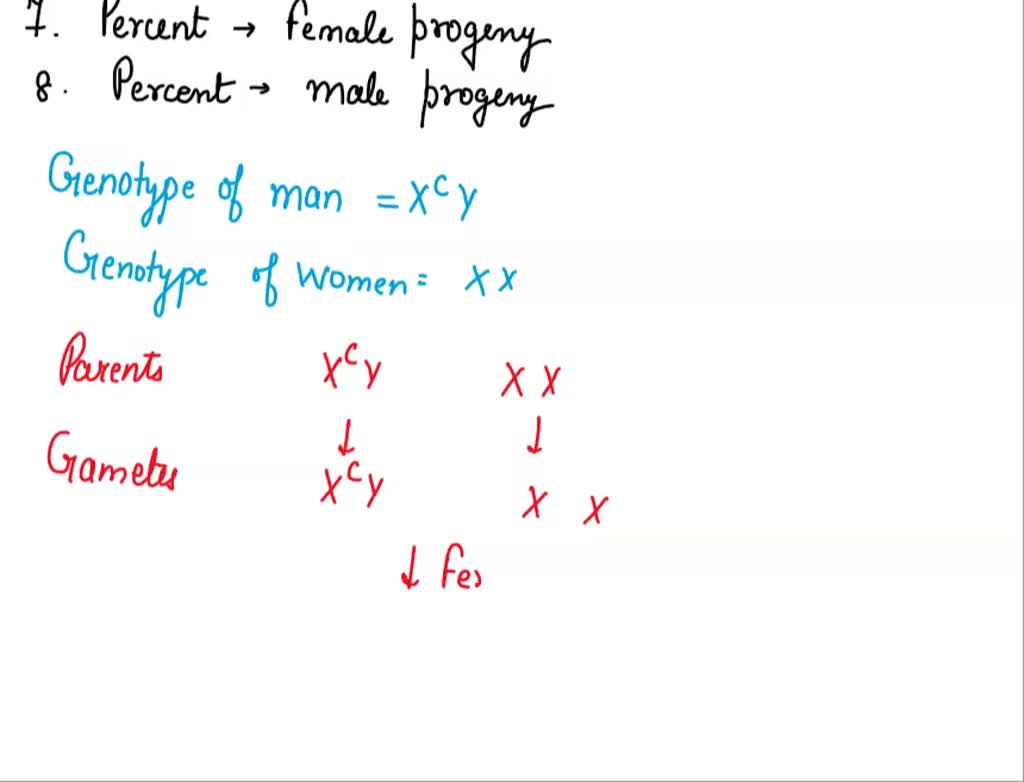 7. Percent → female progeny
8. Percent → male progeny
Genotype of man = X^C Y
Genotype of women = X X
Parents X^C Y X X
↓ ↓
Gametes X^C Y X X
↓ Fer